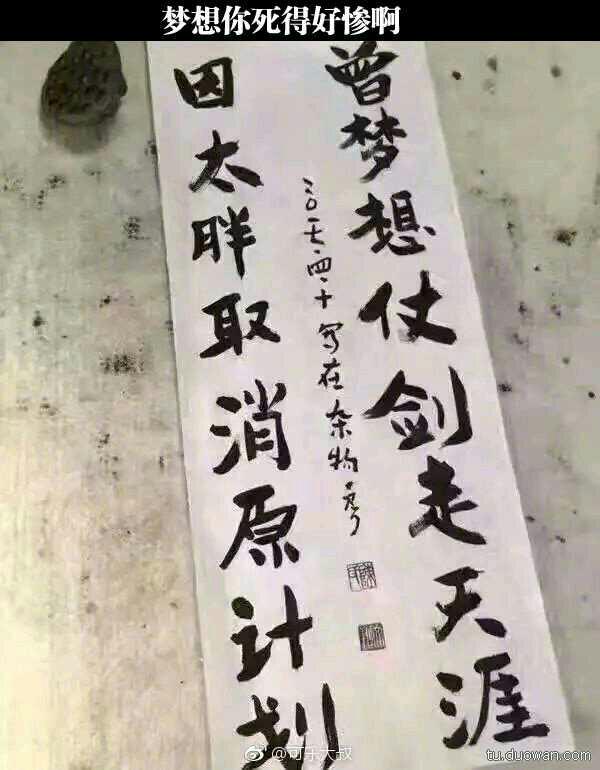 梦想你死得好惨啊
曾梦想仗剑走天涯
因太胖取消原计划
二〇一七·四·十 写在杂物
@可乐大叔
tu.duowan.com